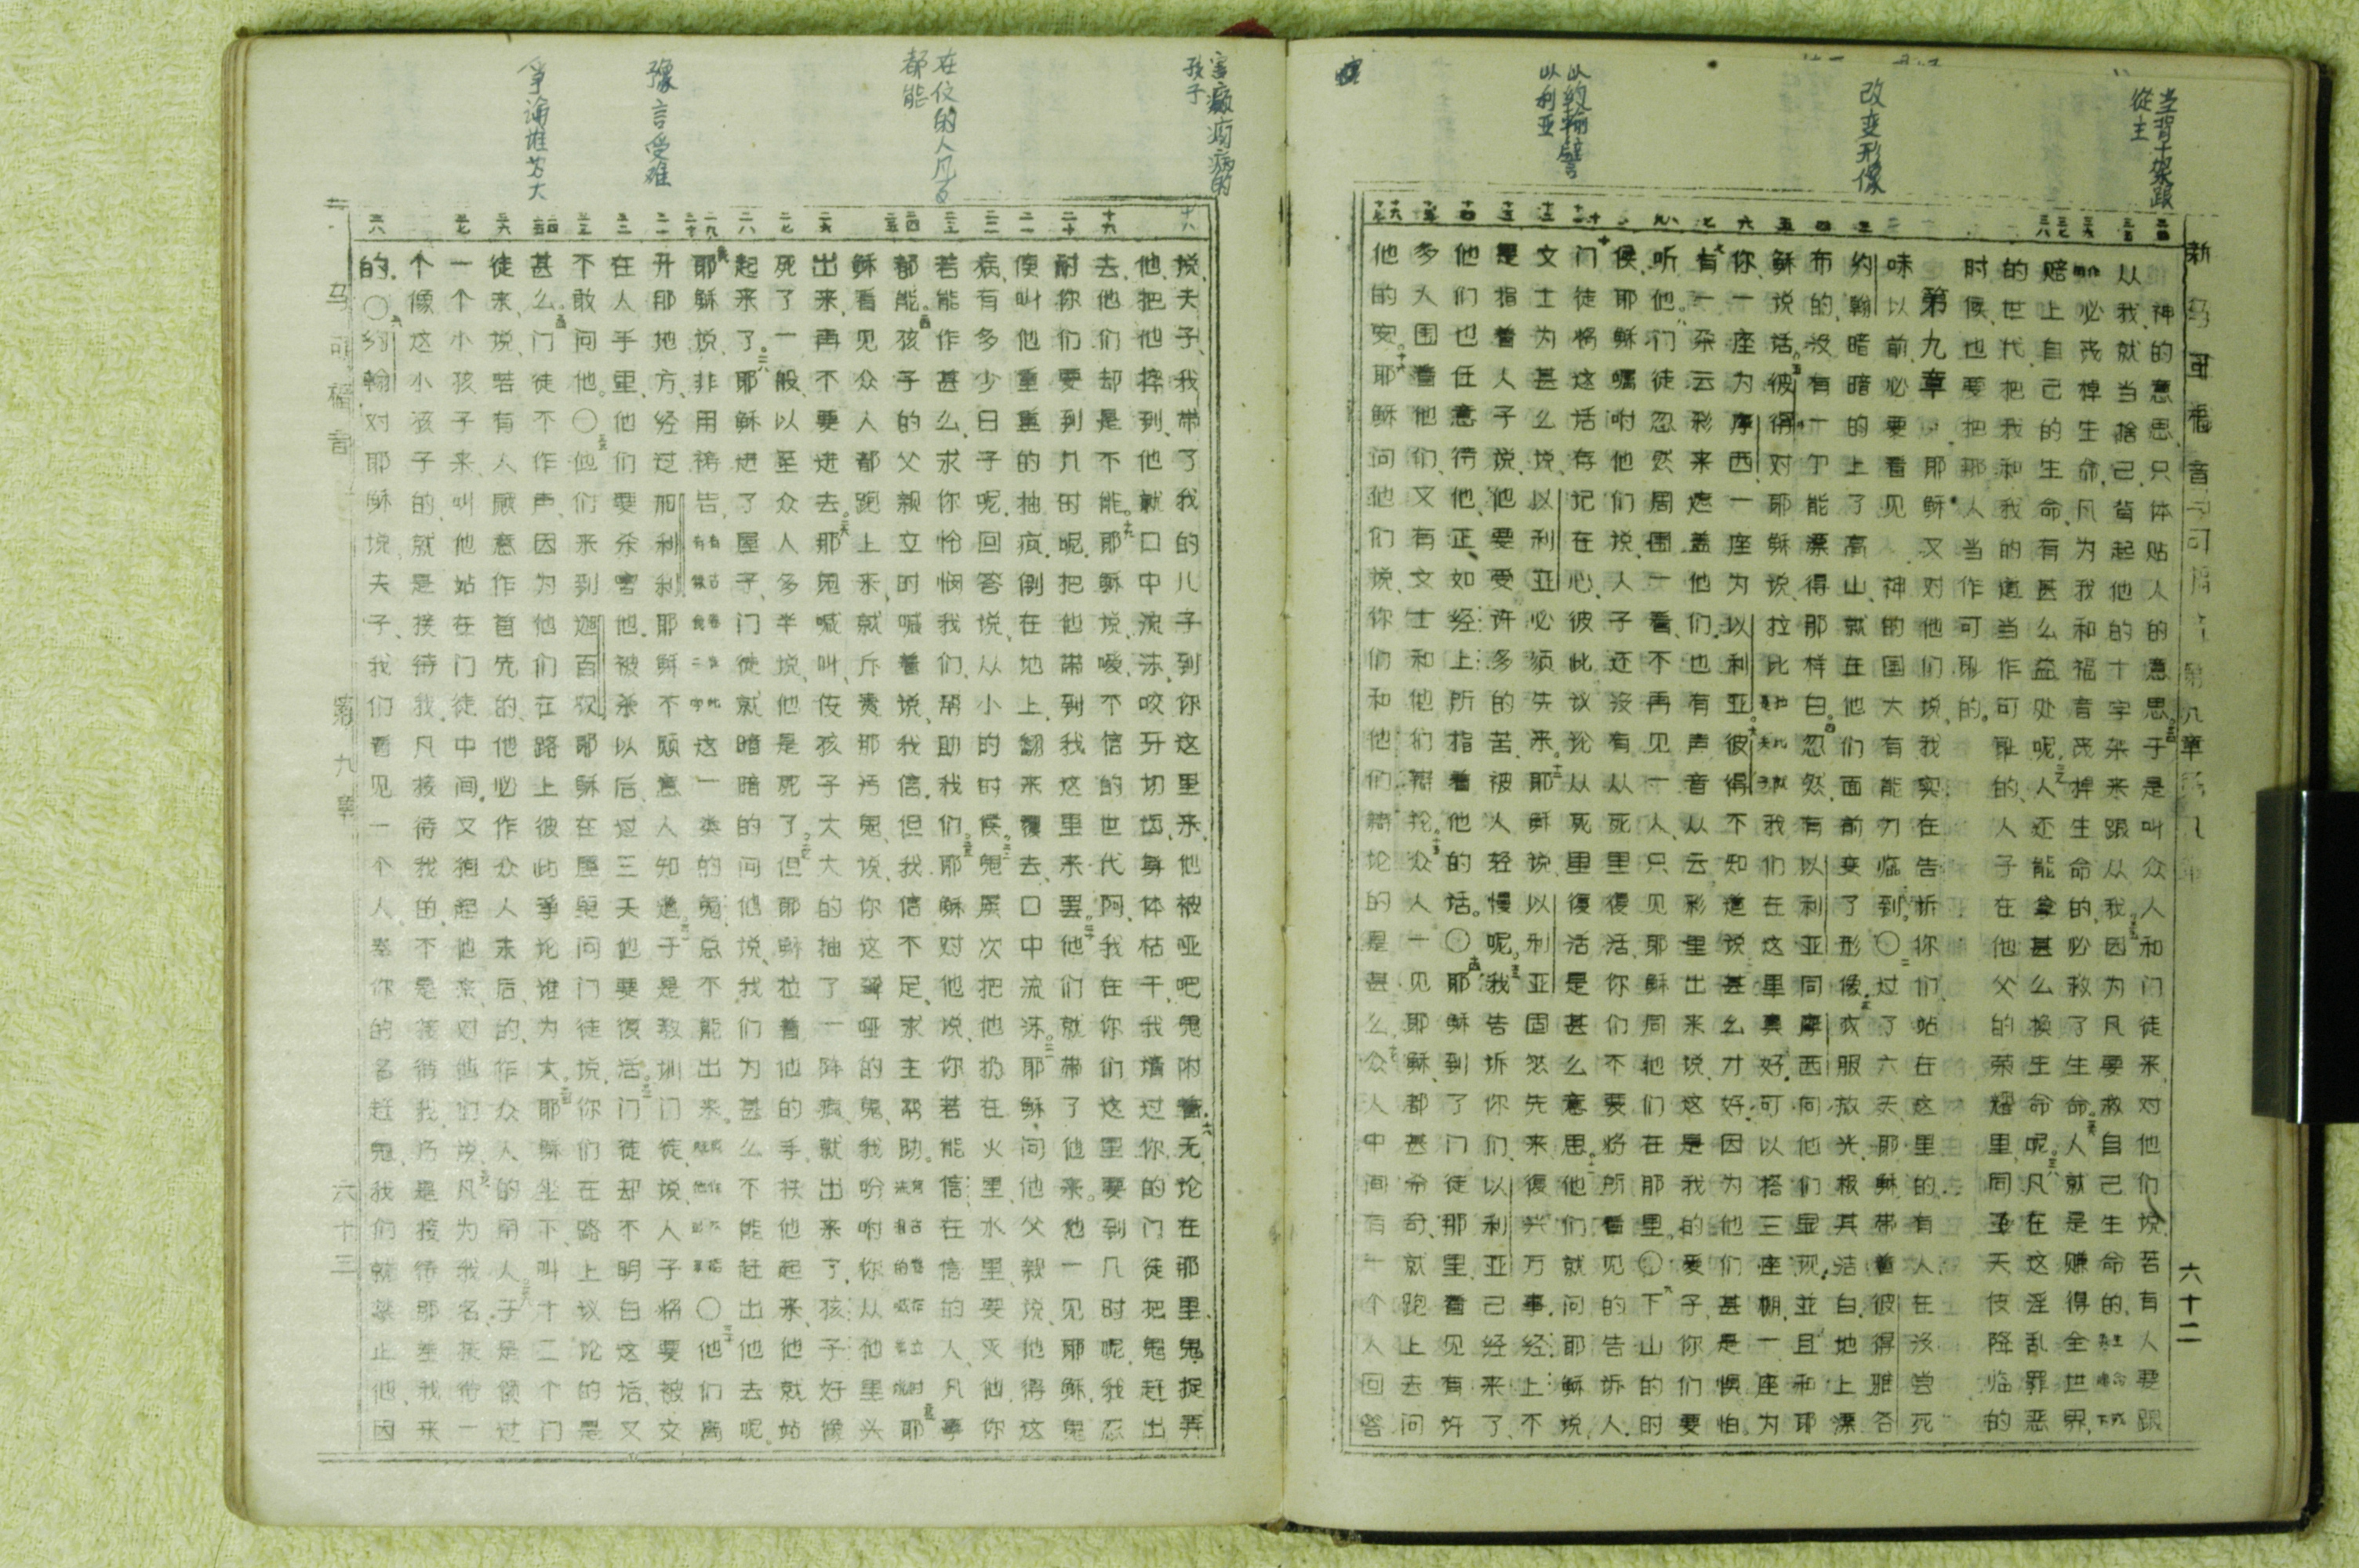 当背十架跟
從主
改变形像
以约翰譬
以利亚
新
六十二
神的意思只体贴人的意思。于是叫众人和门徒来对他们说若有人要跟
从我就当捨己背起他的十字架来跟从我。因为凡要救自己生命的
必丧掉生命凡为我和福音丧掉生命的必救了生命。人就是赚得全世界
赔上自己的生命有甚么益处呢。人还能拿甚么换生命呢。凡在这淫乱罪恶
的世代把我和我的道当作可耻的人子在他父的荣耀里同圣天使降临的
时候也要把那人当作可耻的。
第九章 耶稣又对他们说我实在告诉你们站在这里的有人在没尝死
味以前必要看见神的国大有能力临到。〇过了六天耶稣带着彼得雅各
约翰暗暗的上了高山就在他们面前变了形像。衣服放光极其洁白地上漂
布的没有一个能漂得那样白。忽然有以利亚同摩西向他们显现並且和耶
稣说话。彼得对耶稣说拉比我们在这里真好可以搭三座棚一座为
你一座为摩西一座为以利亚彼得不知道说甚么才好因为他们甚是惧怕。
有一朵云彩来遮盖他们也有声音从云彩里出来说这是我的爱子你们要
听他。门徒忽然周围一看不再见一人只见耶稣同他们在那里。〇下山的时
候耶稣嘱咐他们说人子还没有从死里復活你们不要将所看见的告诉人
门徒将这话存记在心彼此议论从死里復活是甚么意思。他们就问耶稣说
文士为甚么说以利亚必须先来。耶稣说以利亚固然先来復兴万事经上不
是指着人子说他要受许多的苦被人轻慢呢。我告诉你们以利亚己经来了
他们也任意待他正如经上所指着他的话。〇耶稣到了门徒那里看见有许
多人围着他们又有文士和他们辩论。众人一见耶稣都甚希奇就跑上去问
他的安。耶稣问他们说你们和他们辩论的是甚么。众人中间有一个人回答
害癫痫病的
孩子
在信的人凡百
都能
豫言受难
争论谁为大
说夫子我带了我的儿子到你这里来他被哑吧鬼附着。无论在那里鬼捉弄
他把他摔到他就口中流沫咬牙切齿身体枯干我请过你的门徒把鬼赶出
去他们却是不能。耶稣说嗳不信的世代阿我在你们这里要到几时呢我忍
耐你们要到几时呢把他带到我这里来罢。他们就带了他来。他一见耶稣鬼
便叫他重重的抽疯倒在地上翻来覆去口中流沫。耶稣问他父親说他得这
病有多少日子呢回答说从小的时候。鬼屡次把他扔在火里水里要灭他你
若能作甚么求你怜悯我们帮助我们。耶稣对他说你若能信在信的人凡事
都能。孩子的父親立时喊着说我信但我信不足求主帮助。耶
稣看见众人都跑上来就斥责那污鬼说你这聋哑的鬼我吩咐你从他里头
出来再不要进去。那鬼喊叫使孩子大大的抽了一阵疯就出来了孩子好像
死了一般以至众人多半说他是死了。但耶稣拉着他的手扶他起来他就站
起来了。耶稣进了屋子门徒就暗暗的问他说我们为甚么不能赶出他去呢
耶稣说非用祷告这一类的鬼总不能出来〇他们离
开那地方经过加利利耶稣不愿意人知道。于是教训门徒说人子将要被交
在人手里他们要杀害他被杀以后过三天他要復活。门徒却不明白这话又
不敢问他。〇他们来到迦百农耶稣在屋里问门徒说你们在路上议论的是
甚么。门徒不作声因为他们在路上彼此争论谁为大。耶稣坐下叫十二个门
徒来说若有人愿意作首先的他必作众人末后的作众人的用人。于是领过
一个小孩子来叫他站在门徒中间又抱起他来对他们说。凡为我名接待一
个像这小孩子的就是接待我凡接待我的不是接待我乃是接待那差我来
的。〇约翰对耶稣说夫子我们看见一个人奉你的名赶鬼我们就禁止他因
马可福音 第九章 六十三